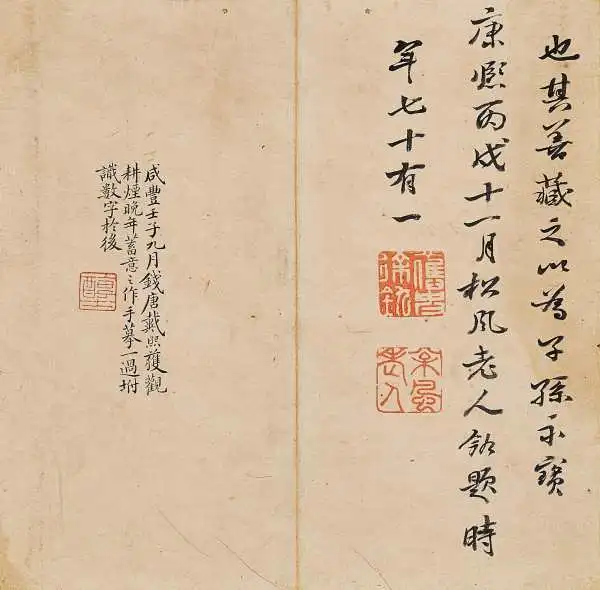 也其善藏之以為子孫永寶
康熙丙戌十一月松風老人釚題時
年七十有一
徐釚
松風老人
咸豐壬子九月錢唐戴熙獲觀
耕煙晚年蓄意之作手摹一過坿
識數字於後
醇士